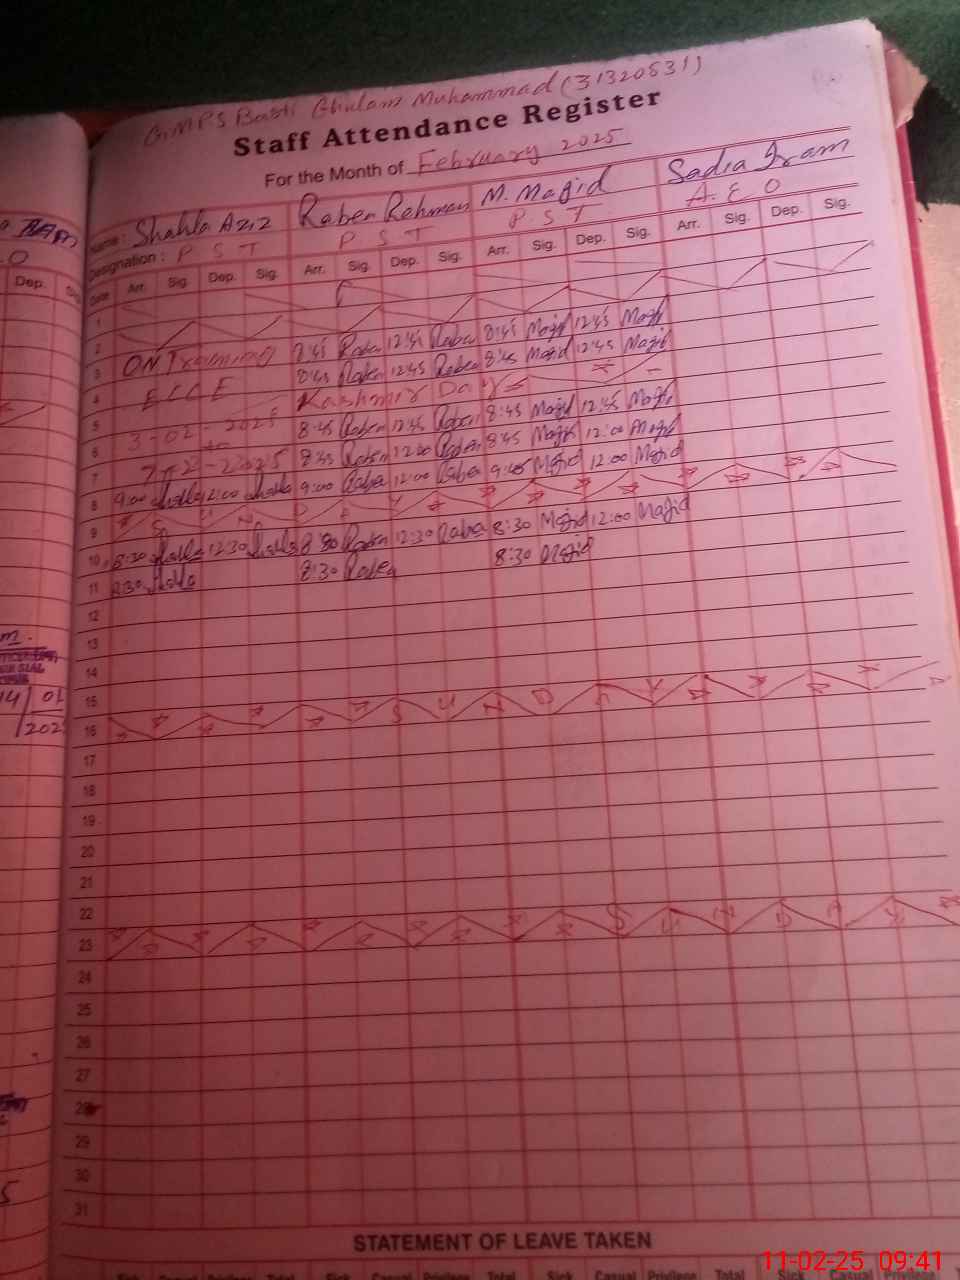 G.M.P.S Basti Ghulam Muhammad (31320531)
Staff Attendance Register
For the Month of February 2025
Name : Shahla Aziz Raben Rehman M. Majid Sadia Iram
Designation : P S T P S T P. S T A. E O
Date Arr. Sig. Dep. Sig. Arr. Sig. Dep. Sig. Arr. Sig. Dep. Sig. Arr. Sig. Dep. Sig.
1
2
3 ON Training 8:45 Raben 12:45 Raben 8:45 Majid 12:45 Majid
4 E C C E 8:45 Raben 12:45 Raben 8:45 Majid 12:45 Majid
5 Kashmir Day
6 3-02-2025 8:45 Raben 12:45 Raben 8:45 Majid 12:45 Majid
7 8:45 Raben 12:00 Raben 8:45 Majid 12:00 Majid
8 9:00 Shahla 12:00 Shahla 9:00 Raben 12:00 Raben Majid 12:00 Majid
9 S U N D A Y
10 8:30 Shahla 12:30 Shahla 8:30 Raben 12:30 Raben 8:30 Majid 12:00 Majid
11 8:30 Shahla 8:30 Raben 8:30 Majid
12
13
14
15
16 S U N D A Y
17
18
19
20
21
22
23 S U N D A Y
24
25
26
27
28
29
30
31
STATEMENT OF LEAVE TAKEN
Sick Casual Privilege Total Sick Casual Privilege Total
Dep.
14/01
2025
11-02-25 09:41